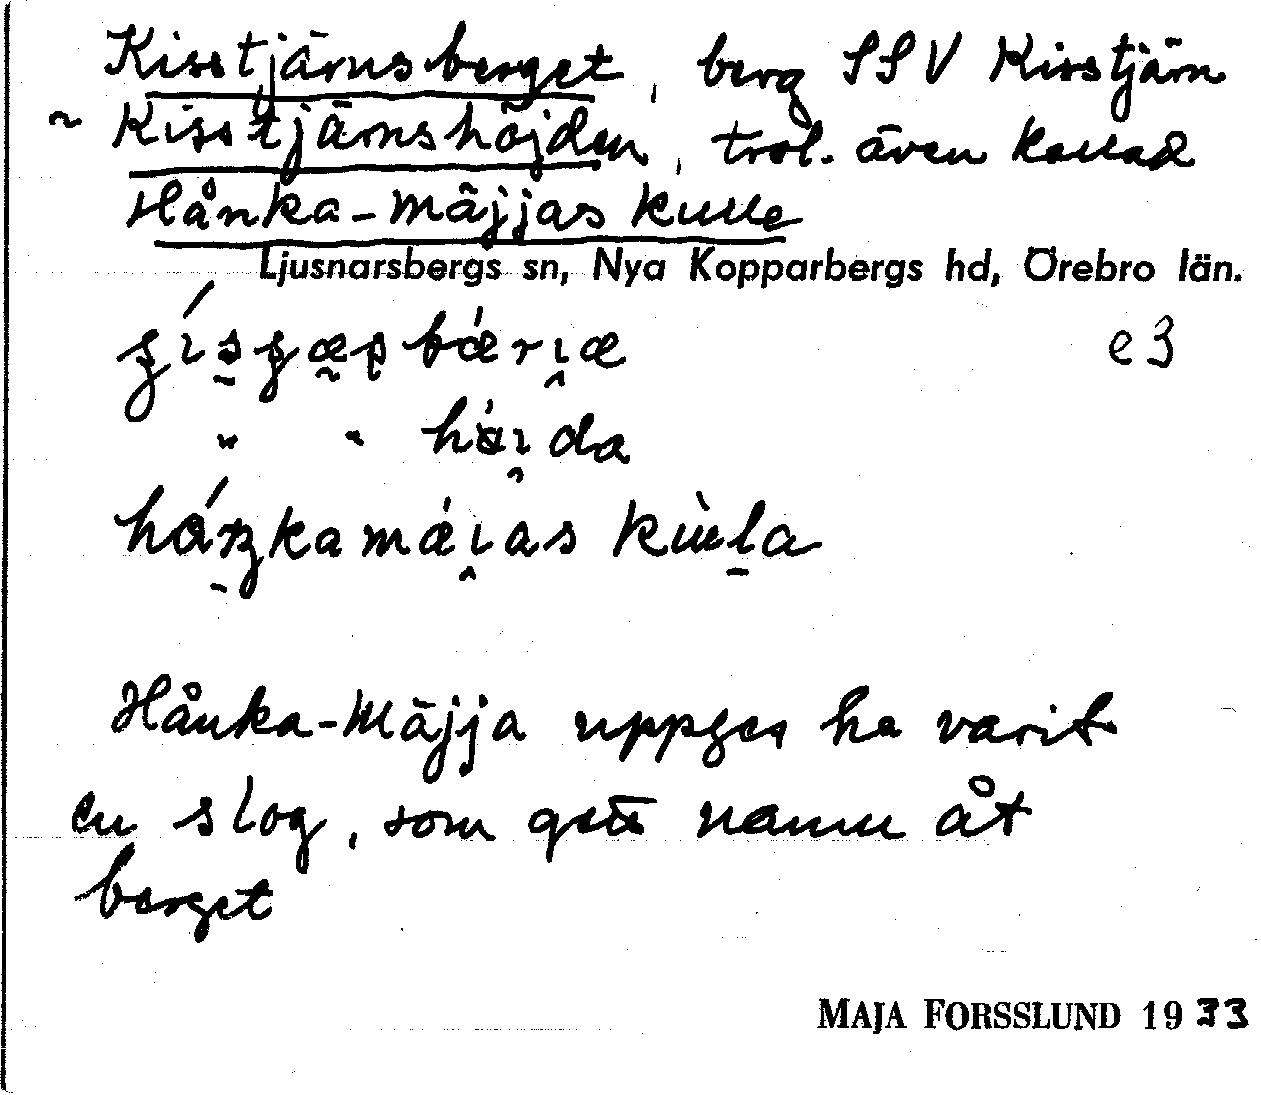 Kisstjärnsberget, berg SSV Kisstjärn
~ Kisstjärnshöjden, trol. även kallad
Hånka-Mäjjas kulle
Ljusnarsbergs sn, Nya Kopparbergs hd, Örebro län.
e3
Hånka-Mäjja uppges ha varit
en slog, som gett namn åt
berget
MAJA FORSSLUND 1933